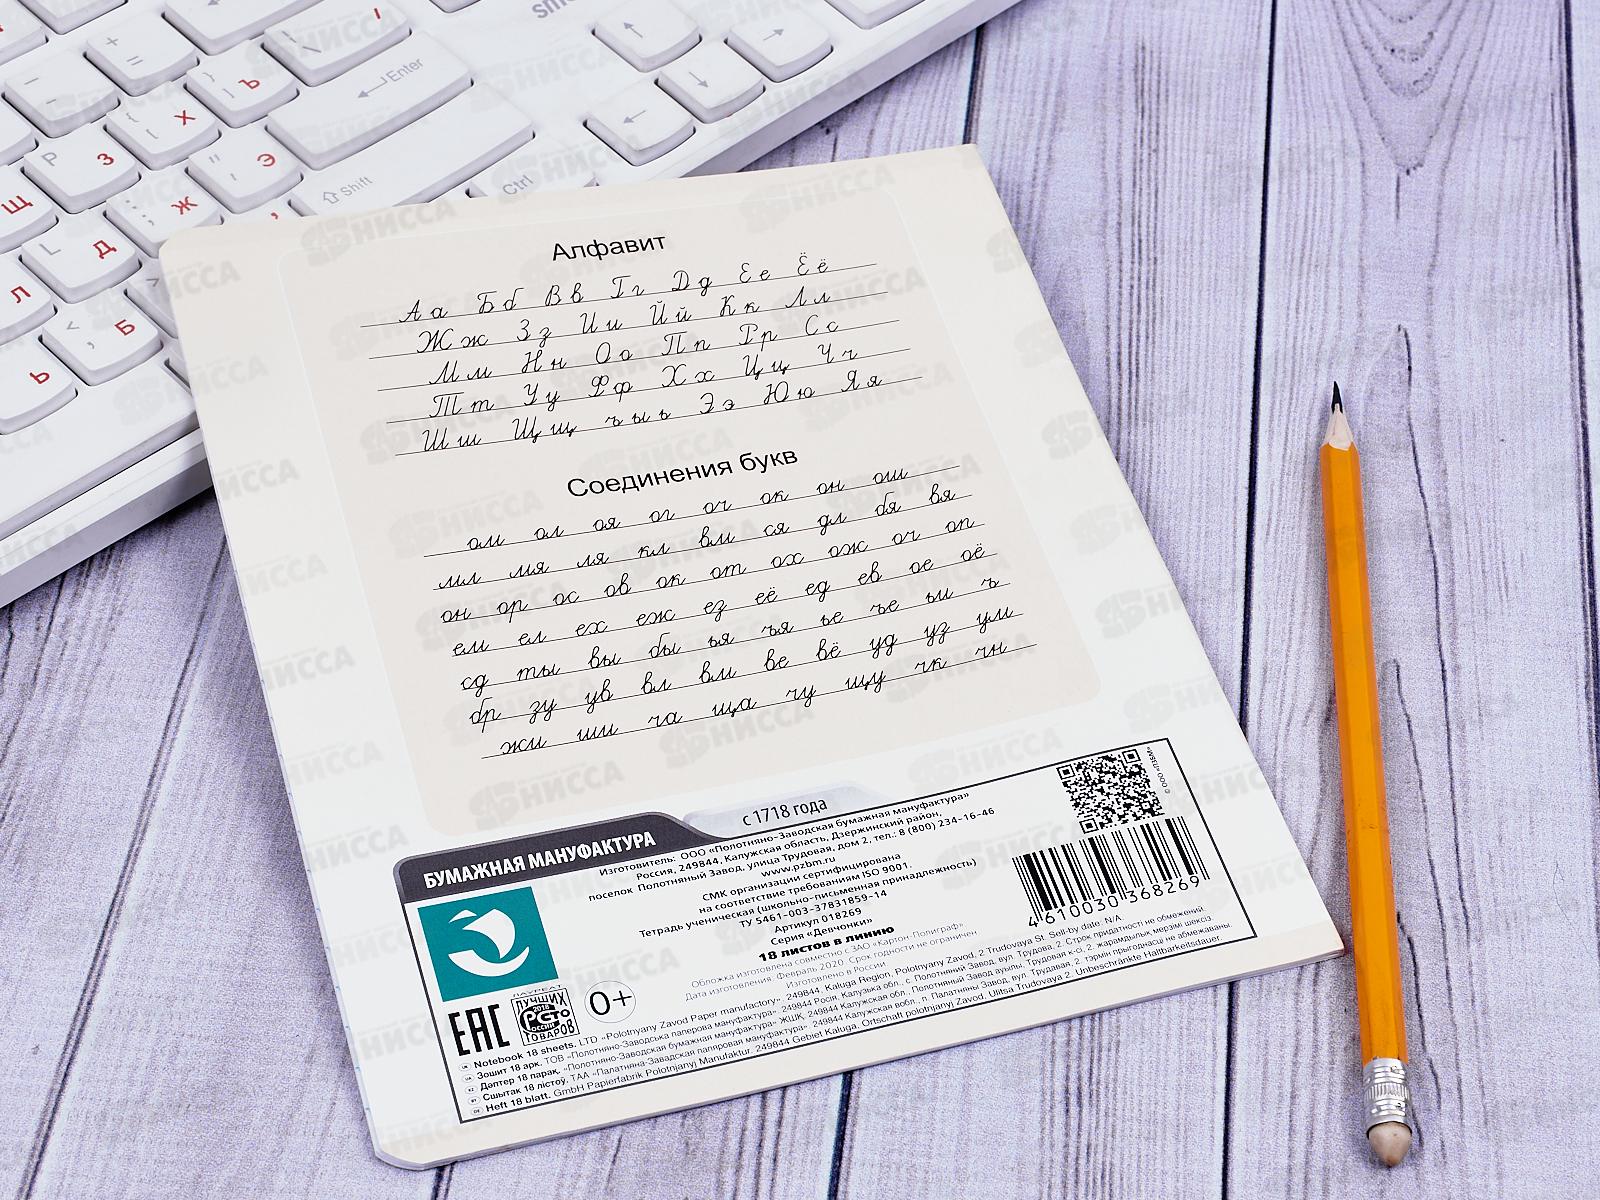 Алфавит
Аа Бб Вв Гг Дд Ее Ёё
Жж Зз Ии Йй Кк Лл
Мм Нн Оо Пп Рр Сс
Тт Уу Фф Хх Цц Чч
Шш Щщ ъыь Ээ Юю Яя
Соединения букв
ом ол оя ог ог ок он ош
мл мя ля кл вм ся дл бя вя
он ор ос ов ок от ох ож оч оп
ем ел ех еж ез её ед ев ое оё
сд ты вы бы ья ъя ье ъе ьи ъ
бр зу ув вл вм ве вё уд уз ум
жи ши ча ща чу щу чк чн
БУМАЖНАЯ МАНУФАКТУРА
с 1718 года
Изготовитель: ООО «Полотняно-Заводская бумажная мануфактура»
Россия, 249844, Калужская область, Дзержинский район,
поселок Полотняный Завод, улица Трудовая, дом 2, тел.: 8 (800) 234-16-46
www.pzbm.ru
СМК организации сертифицирована
на соответствие требованиям ISO 9001.
Тетрадь ученическая (школьно-письменная принадлежность)
ТУ 5461-003-37831859-14
Артикул 018269
Серия «Девчонки»
18 листов в линию
Обложка изготовлена совместно с ЗАО «Картон-Полиграф»
Дата изготовления: Февраль 2020. Срок годности не ограничен
Изготовлено в России
© ООО «ПЗБМ»
4 610030 368269
EAC
ЛАУРЕАТ
ЛУЧШИХ
2018
СТО
РОССИИ
ТОВАРОВ
0+
Notebook 18 sheets. LTD «Polotnyany Zavod Paper manufactory», 249844, Kaluga Region, Polotnyany Zavod, 2 Trudovaya St. Sell-by date: N/A.
Зошит 18 арк. ТОВ «Полотняно-Заводська паперова мануфактура», 249844 Росія, Калузька обл., с. Полотняний Завод, вул. Трудова, 2. Строк придатності не обмежений.
Дәптер 18 парақ. «Полотняно-Заводская бумажная мануфактура» ЖШҚ, 249844 Калужская обл., Полотняный Завод ауылы, Трудовая к-сі, 2. жарамдылық мерзімі шексіз.
Сшытак 18 лістоў. ТАА «Палатняна-Завадская папяровая мануфактура» 249844 Калужская вобл., п. Палатняны Завод, вул. Трудавая, 2. тэрмін прыгоднасці не абмежаваны.
Heft 18 blatt. GmbH Papierfabrik Polotnjanyj Manufaktur. 249844 Gebiet Kaluga, Ortschaft polotnjanyj Zavod, Ulitsa Trudovaya 2. Unbeschränkte Haltbarkeitsdauer.
Enter
Shift
Ctrl
Ъ
Х
P З
Э
Щ
Ж
L Д
Л
Б
Ь
НИССА